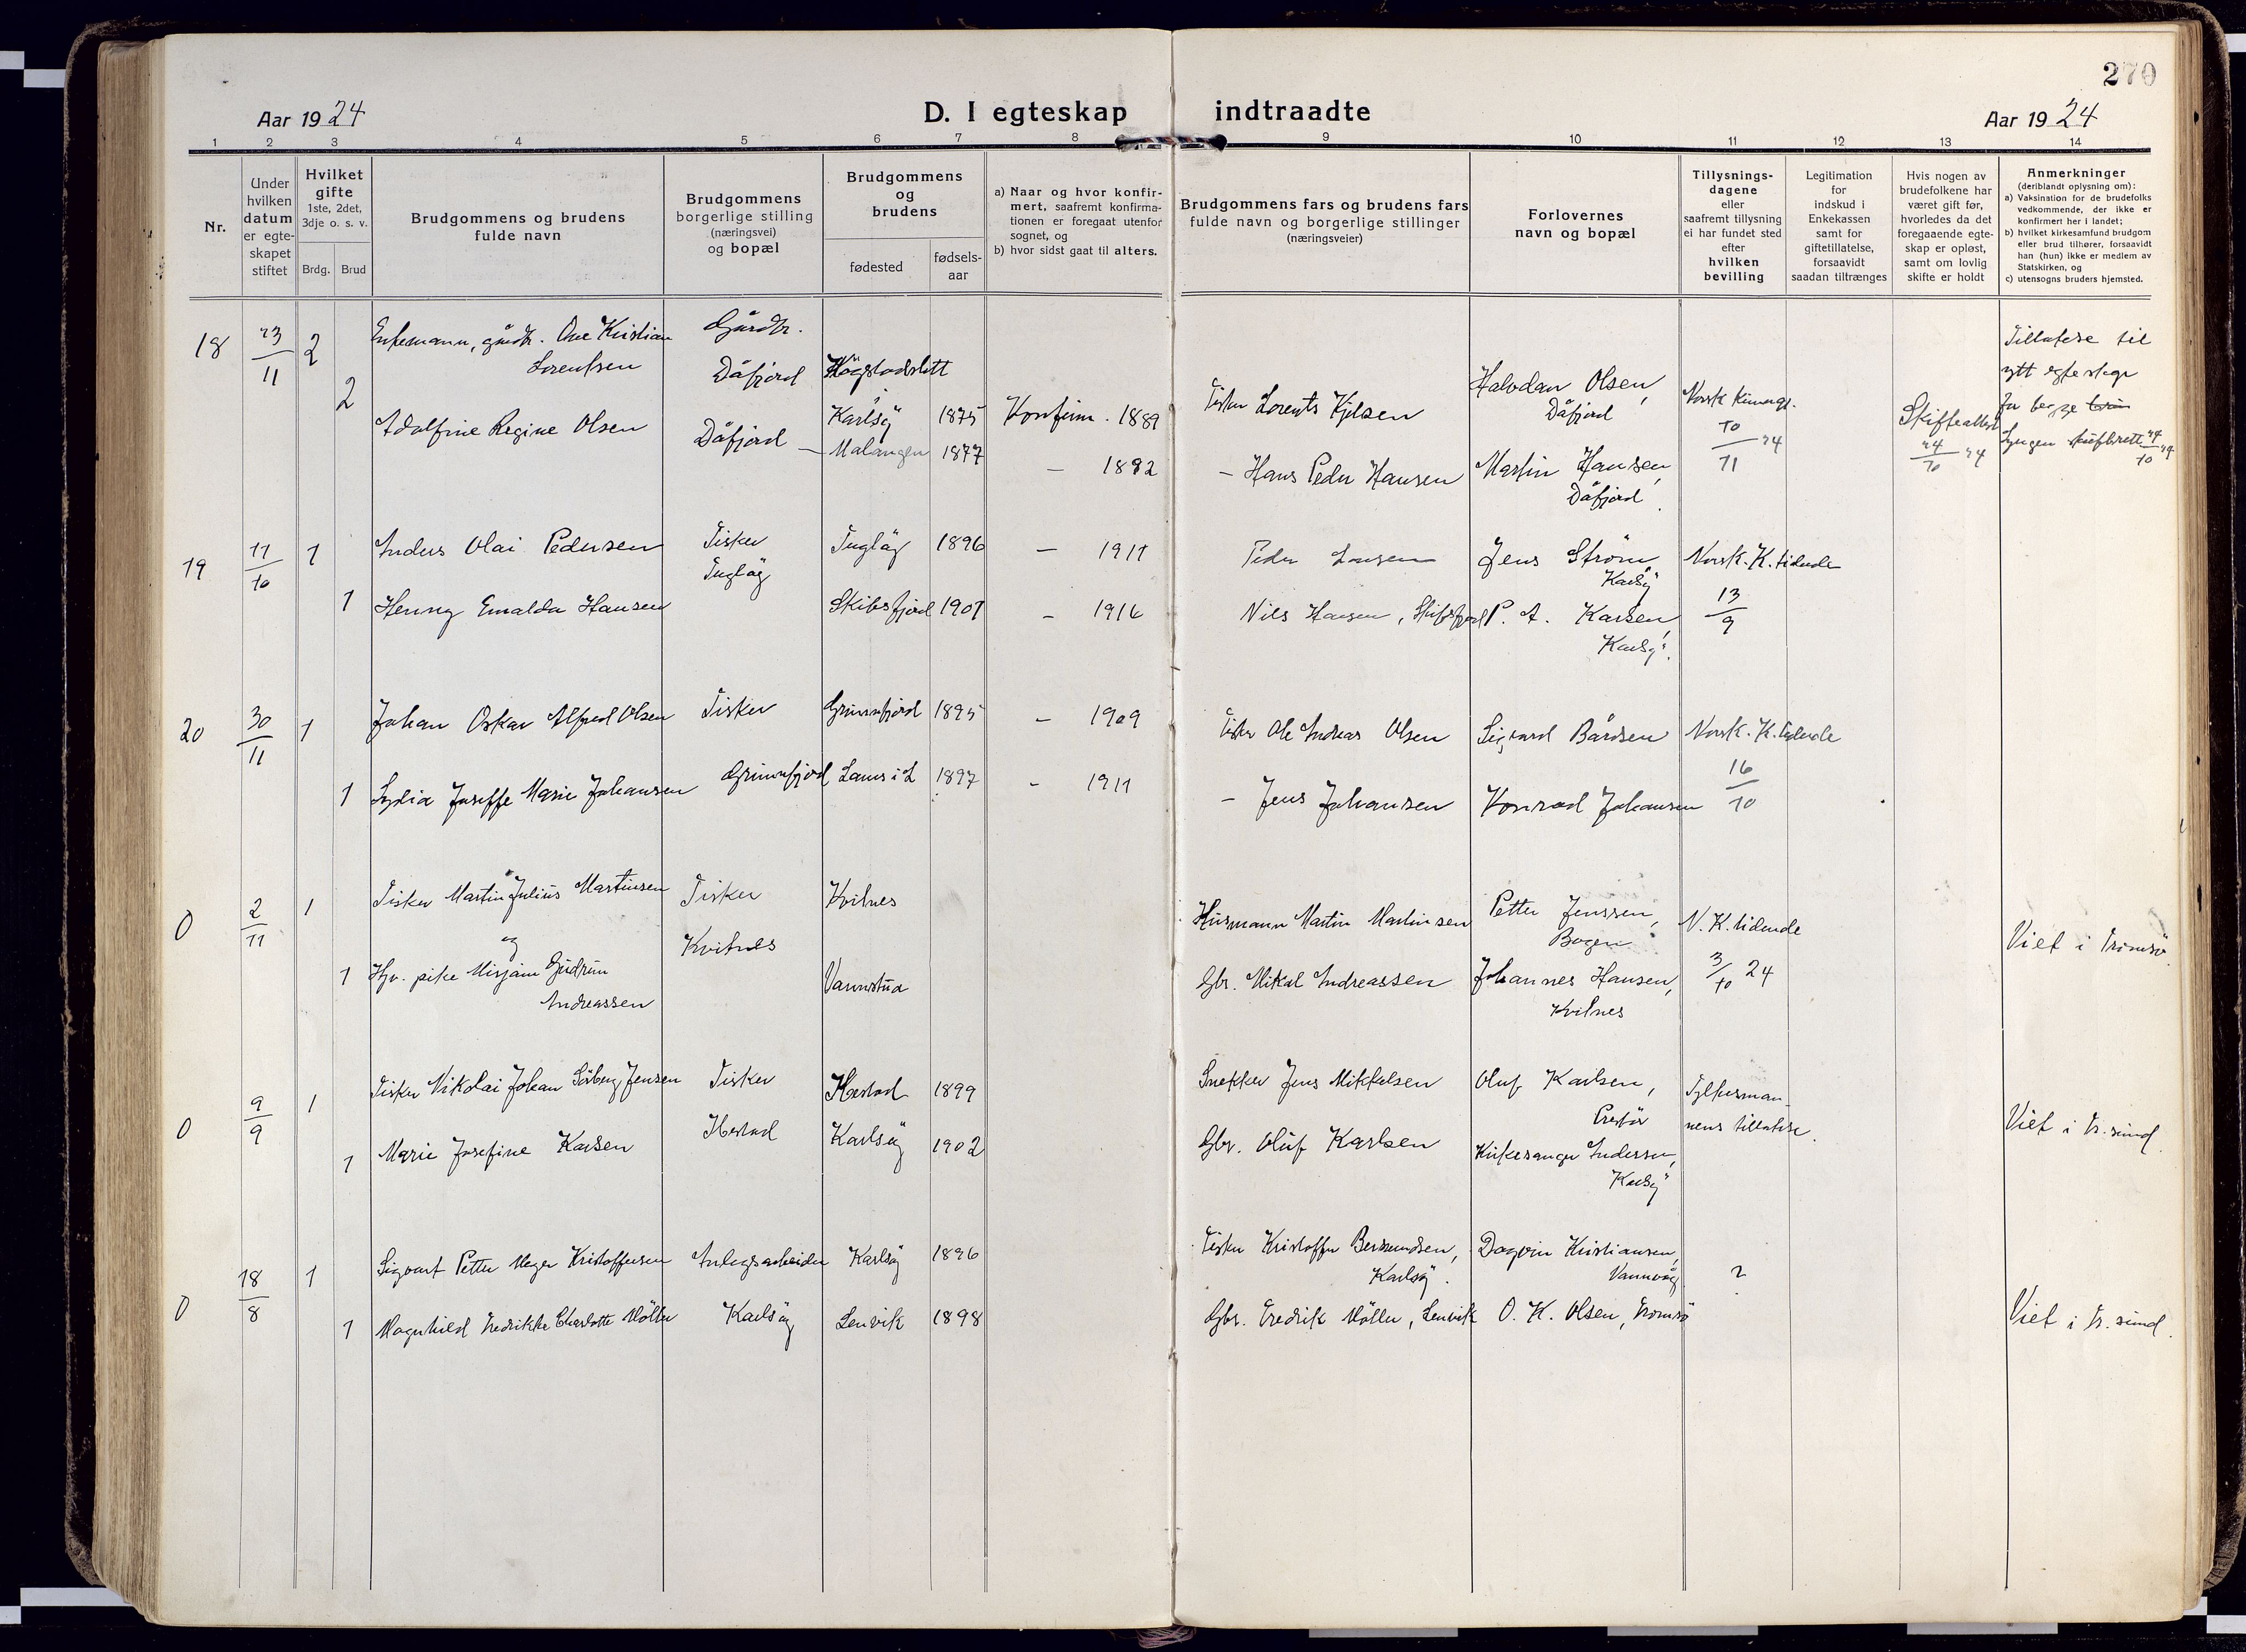 270
Aar 1924
D. I egteskap indtraadte
Aar 1924
1 2 3 4 5 6 7 8 9 10 11 12 13 14
Nr.
Under
hvilken
datum
er egte-
skapet
stiftet
Hvilket
gifte
1ste, 2det,
3dje o. s. v.
Brdg. Brud
Brudgommens og brudens
fulde navn
Brudgommens
borgerlige stilling
(næringsvei)
og bopæl
Brudgommens
og
brudens
fødested
fødsels-
aar
a) Naar og hvor konfir-
mert, saafremt konfirma-
tionen er foregaat utenfor
sognet, og
b) hvor sidst gaat til alters.
Brudgommens fars og brudens fars
fulde navn og borgerlige stillinger
(næringsveier)
Forlovernes
navn og bopæl
Tillysnings-
dagene
eller
saafremt tillysning
ei har fundet sted
efter
hvilken
bevilling
Legitimation
for
indskud i
Enkekassen
samt for
giftetillatelse,
forsaavidt
saadan tiltrænges
Hvis nogen av
brudefolkene har
været gift før,
hvorledes da det
foregaaende egte-
skap er opløst,
samt om lovlig
skifte er holdt
Anmerkninger
(deriblandt oplysning om):
a) Vaksination for de brudefolks
vedkommende, der ikke er
konfirmert her i landet;
b) hvilket kirkesamfund brudgom
eller brud tilhører, forsaavidt
han (hun) ikke er medlem av
Statskirken, og
c) utensogns bruders hjemsted.
18 23/11 2 Enkemann, gårdbr. Ove Kristian
Lorentsen
Gårdbr.
Dåfjord
Karlsöy 1875 Konfirm. 1889
Fisker Lorents Kjilsen
Halvdan Olsen,
Dåfjord
10/11 24
Skifteattest
24/10 24
Tillatelse til
nytt egteskap
for begge
Lyngen 24/10 24
2 Adolfine Regine Olsen Dåfjord — Malangen 1877 — 1892
— Hans Peder Hansen
Martin Hansen,
Dåfjord.
19 11/10 1 Anders Olai Pedersen Fisker 1896 — 1911
Peder Larsen Jens Ström
Karlsöy
Norsk. K. tidende
13/9
1 Henny Emalda Hansen Skibsfjord 1901 — 1916
Nils Hansen, Skibsfjord P. A. Karlsen,
Karlsöy.
20 30/11 1 Johan Oskar Alfred Olsen Fisker Grunnfjord 1895 — 1909
Fisker Ole Andreas Olsen Sigvard Bårdsen Norsk. K. tidende
16/10
1 Lydia Joseffe Marie Johansen Grunnfjord 1897 — 1911
— Jens Johansen Konrad Johansen
0 2/11 1 Fisker Martin Julius Martinsen Fisker Kvitnes
og
Kvitnes
Husmann Martin Martinsen Petter Jenssen,
Bogen
N. K. tidende
3/10 24
Viet i Tromsö.
1 Hjv. pike Mirjam Gudrun
Andreassen
Vannstua
Gbr. Mikal Andreassen Johannes Hansen,
Kvitnes
0 9/9 1 Fisker Nikolai Johan Sörberg Jensen Fisker Hestad 1899
Hestad
Snekker Jens Mikkelsen Oluf Karlsen,
Fylkesman-
nens tillatelse.
Viet i Tr.sund.
1 Marie Josefine Karlsen Karlsöy 1902
Gbr. Oluf Karlsen Kirkesanger Anderssen,
Karlsöy
0 18/8 1 Sigvart Petter Meyer Kristoffersen Anlegsarbeider Karlsöy 1896
Fisker Kristoffer Berteundsen,
Karlsöy.
Dagvin Kristiansen,
Vannvåg
?
Viet i Tr.sund.
1 Magnhild Fredrikke Charlotte Möller Karlsöy Lenvik 1898
Gbr. Fredrik Möller, Lenvik O. K. Olsen, Tromsö